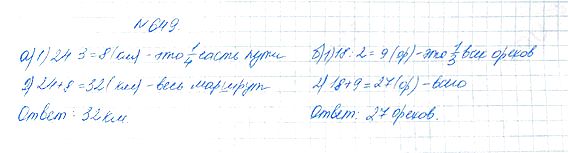 №649.
а) 1) 24 : 3 = 8 (км) - это 1/4 часть пути
2) 24+8 = 32 (км) - весь маршрут
Ответ: 32 км.
б) 1) 18 : 2 = 9 (ор) - это 1/3 всех орехов
2) 18+9 = 27 (ор) - всего
Ответ: 27 орехов.